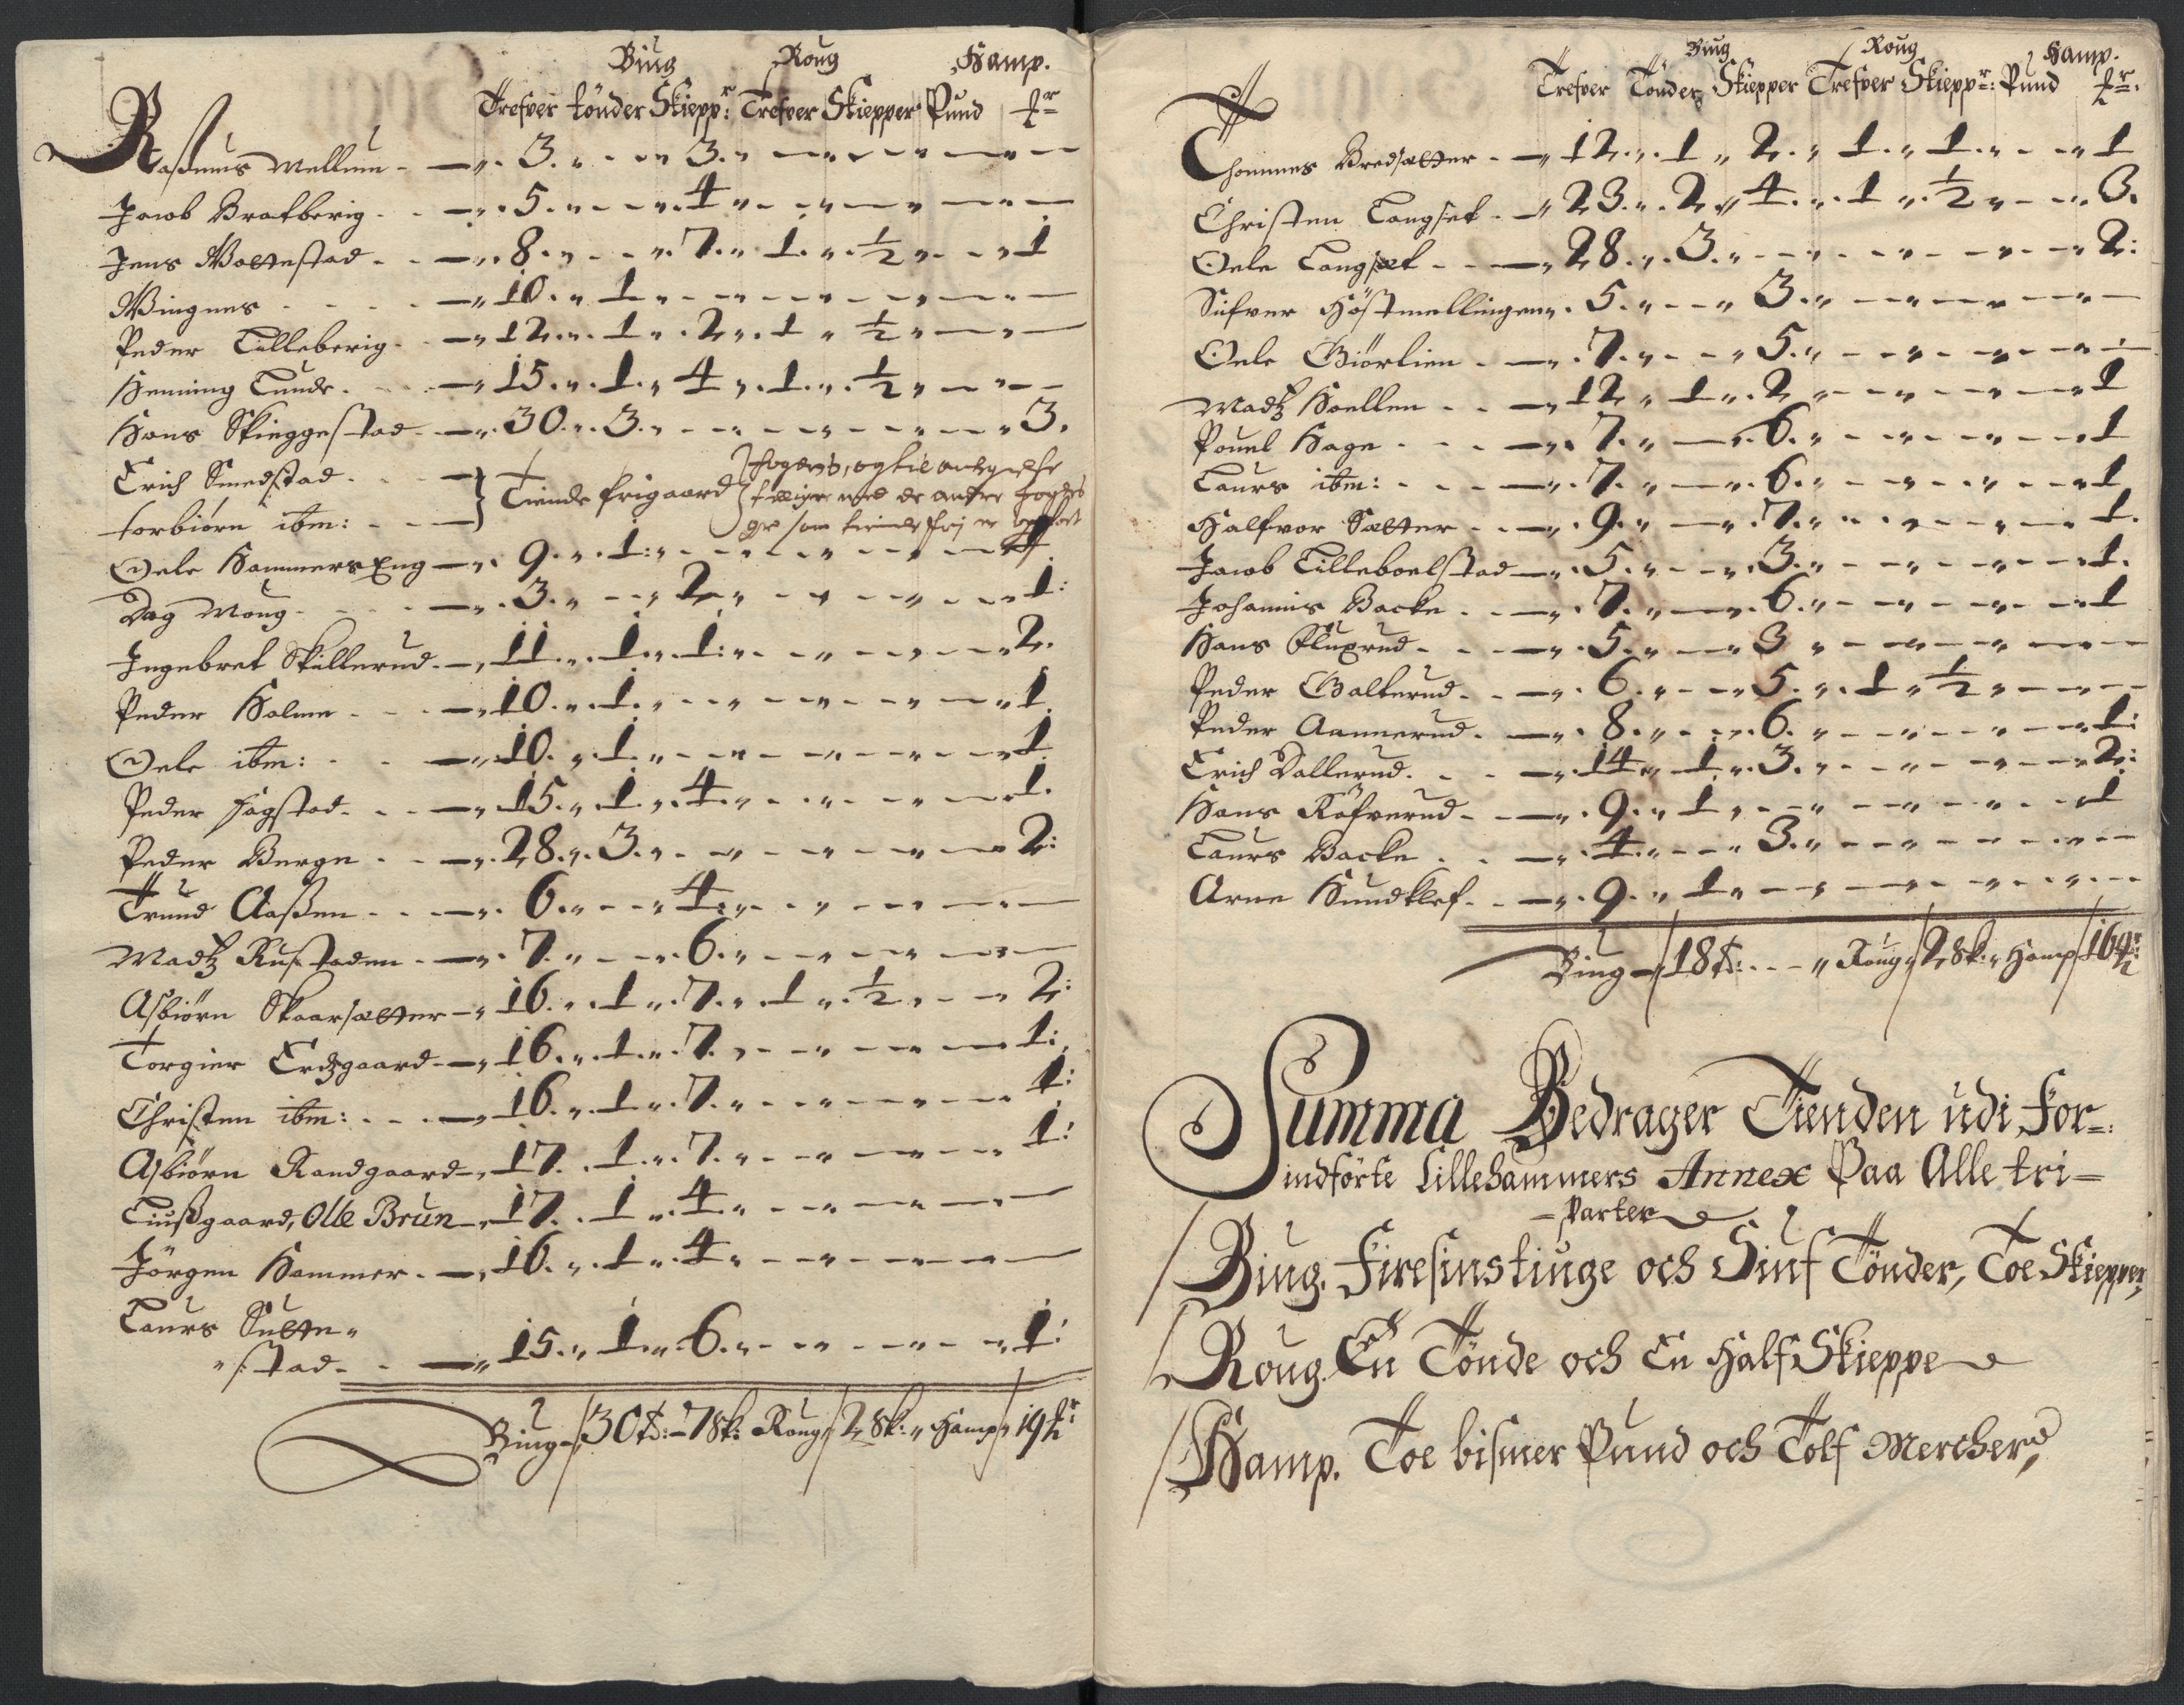 Biug Roug Hamp.
Trefver tönder Skiepp:r Trefver Skiepper Pund
Rasmus Mellum - 3. - 3.
Jacob Bratberig - 5. - 4
Jens Woldestad - 8. - 7. 1. ½ - 1
Wingnes - 10. 1
Peder Lilleberig - 12. 1. 2. 1 ½
Henning Lunde - 15. 1. 4. 1. ½
Hans Skieggestad - 30. 3. - 3.
Erich Smedstad
torbiørn ibm: Tiende frigaard
Oele HammersEng - 9. 1. - 1.
Dag Moug - 3. - 2 - 1:
Ingebret Skillerud - 11. 1. 1: - 2.
Peder Holme - 10. 1. - 1.
Oele ibm: - 10. 1 - 1
Peder Hagstad - 15. 1. 4. - 1.
Peder Berge - 28. 3. - 2:
Trund Aasen - 6. - 4
Madtz Rustaden - 7. - 6.
Asbiørn Skaarsætter - 16. 1. 7. 1 ½ - 2:
Torgier Erdzgaard - 16. 1. 7. - 1:
Christen ibm: - 16. 1. 7. - 1:
Asbiørn Randgaard - 17. 1. 7. - 1:
Liusgaard, Olle Brun - 17. 1. 4
Jörgen Hammer - 16. 1. 4
Laurs Sutte„
„stad - 15. 1. 6. - 1:
Biug 30 t: - 7 sk: Roug 2 sk: Hamp 19
Biug Roug Hamp.
Trefver Tönder Skiepper Trefver Skiepp:r Pund
Thommes Bredsætter - 12. 1 2. 1. 1. - 1
Christen Langset - 23. 2. 4. 1 ½ - 3.
Oele Langsæt - 28. 3. - 2:
Sifver Höstmellingen - 5. - 3.
Oele Giörlien - 7. - 5.
Madtz Hoellen - 12 1. 2 - 1
Pouel Hage - 7. - 6. - 1
Laurs ibm: - 7. - 6. - 1
Halfvor Sætter - 9. - 7. - 1.
Jacob Lilleboelstad - 5. - 3. - 1.
Johannis Backe - 7. - 6. - 1
Hans Fluxrud - 5. - 3
Peder Galterud - 6. - 5. 1 ½
Peder Aannerud - 8. - 6. - 1:
Erich Dallerud - 14 1. 3. - 2:
Hans Röfverud - 9. 1 - 1
Laurs Backe - 4. - 3.
Arne Hundklef - 9. 1
Biug 18 t: Roug 2 sk: Hamp 16
Summa Bedrager Tienden udi For=
indförte Lillehammers Annex Paa Alle tri=
=Parter
Biug. Firesinstiuge och Siuf Tönder, Toe Skiepper,
Roug. En Tönde och En Half Skieppe
Hamp. Toe bismer Pund och Tolf Mercher,